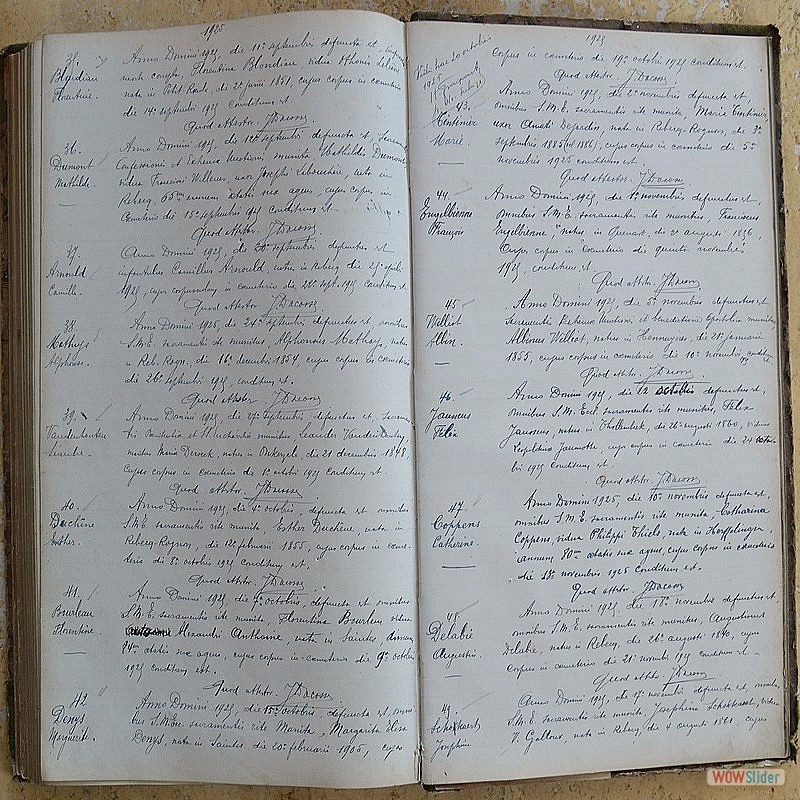 1925.
35.
Blondiau
Florentine.
Anno Domini 1925, die 11a septembris defuncta est,
Florentine Blondiau, vidua
nata in Petit Rœulx, die 2a junii 1851, cujus corpus in cœmeterio
die 14a septembris 1925 conditum est
Quod attestor. J Dacosse
36.
Dumont
Mathilde.
Anno Domini 1925, die 12a septembris defuncta est, Sacramentis
Confessionis et Extremæ Unctionis munita Mathildis Dumont
vidua Francisci Willems, uxor Josephi
Rebecq, 65um annum ætatis suæ agens, cujus corpus in
Cœmeterio die 15a septembris 1925 conditum est.
Quod attestor. J Dacosse
37.
Arnould
Camille.
Anno Domini 1925, die 20a septembris defunctus est
infantulus Camillus Arnould, natus in Rebecq die
1925, cujus corpusculum in cœmeterio die 22a sept. 1925 conditum est
Quod attestor J Dacosse
38.
Mathys
Alphonse.
Anno Domini 1925, die 24a septembris defunctus est, omnibus
S.M.E. sacramentis rite munitus, Alphonsus Mathys, natus
in Reb. Rogn. die 16a decembris 1854, cujus corpus in cœmeterio
die 26a septembris 1925 conditum est.
Quod attestor J Dacosse
39.
Anno Domini 1925, die 27a septembris defunctus est, Sacramentis
Pœnitentiæ et munitus, Leander
maritus Maria natus in die 21 decembris 1848,
cujus corpus in cœmeterio die 1a octobris 1925 conditum est.
Quod attestor. J Dacosse
40.
Duchêne
Esther.
Anno Domini 1925, die 4a octobris, defuncta est omnibus
S.M.E. sacramentis rite munita, Esther Duchêne, nata in
Rebecq-Rognon, die 12a februarii 1855, cujus corpus in cœme-
terio die 8a octobris 1925 conditum est.
Quod attestor J Dacosse
41.
Bourleau
Florentine.
Anno Domini 1925, die octobris, defuncta est omnibus
S.M.E. sacramentis rite munita, Florentina Bourleau vidua
Alexandri Anthoine, nata in Saintes annum
ætatis suæ agens, cujus corpus in cœmeterio die 9a octobris
1925 conditum est.
Quod attestor. J Dacosse
42
Denys
Marguerite.
Anno Domini 1925, die 15a octobris, defuncta est, omni-
bus S.M.Ecc. sacramentis rite munita, Margarita Elisa
Denys, nata in Saintes, die 20a februarii 1905, cujus
1925
corpus in cœmeterio die 19a octobris 1925 conditum est.
Quod attestor. J Dacosse
20 octobris
1925
43.
Tintinier
Marie.
Anno Domini 1925, die 2a novembris defuncta est,
omnibus S.M.E. sacramentis rite munita, Maria Tintinier
uxor Amati Dejardin, nata in Rebecq-Rognon, die 3a
septembris 1885 (vel 1886), cujus corpus in cœmeterio die 5a
novembris 1925 conditum est.
Quod attestor. J Dacosse
44.
Engelbienne
François
Anno Domini 1925, die 1a novembris defunctus est,
omnibus S.M.E. sacramentis rite munitus, Franciscus
Engelbienne, natus in Quenast, die augusti 1836,
cujus corpus in cœmeterio die quinta novembris
1925, conditum est
Quod attestor. J Dacosse
45
Williot
Albin.
Anno Domini 1925, die 5a novembris defunctus est
Sacramentis Extremæ Unctionis et benedictione Apostolica munitus
Albinus Williot, natus in Hennuyères, die januarii
1855, cujus corpus in cœmeterio die 10a novembris conditum est
Quod attestor. J Dacosse
46.
Janssens
Félix
Anno Domini 1925, die 12 octobris defunctus est,
omnibus S.M. Eccl. sacramentis rite munitus, Felix
Janssens, natus in Thollembeek, die 26a augusti 1860, viduus
Leopoldina cujus corpus in cœmeterio die 24 octo-
bris 1925 conditum est.
Quod attestor. J Dacosse
47.
Coppens
Catherine.
Anno Domini 1925, die 10a novembris defuncta est,
omnibus S.M.E. sacramentis rite munita, Catharina
Coppens vidua Philippi Thiels, nata in Herffelingen,
annum 80um ætatis suæ agens, cujus corpus in cœmeterio
die novembris 1925 conditum est.
Quod attestor J Dacosse
48.
Delabie
Augustin.
Anno Domini 1925, die 18a novembris defunctus est
omnibus S.M.E. sacramentis rite munitus, Augustinus
Delabie, natus in Rebecq, die 26a augusti 1840, cujus
corpus in cœmeterio die 21a novembris 1925 conditum est
Quod attestor. J Dacosse
49.
Joséphine
Anno Domini 1925, die novembris defuncta est, omnibus
S.M.E. sacramentis rite munita, Josephina
V. Galloux, nata in Rebecq, die 4 augusti 1861, cujus
WOWSlider